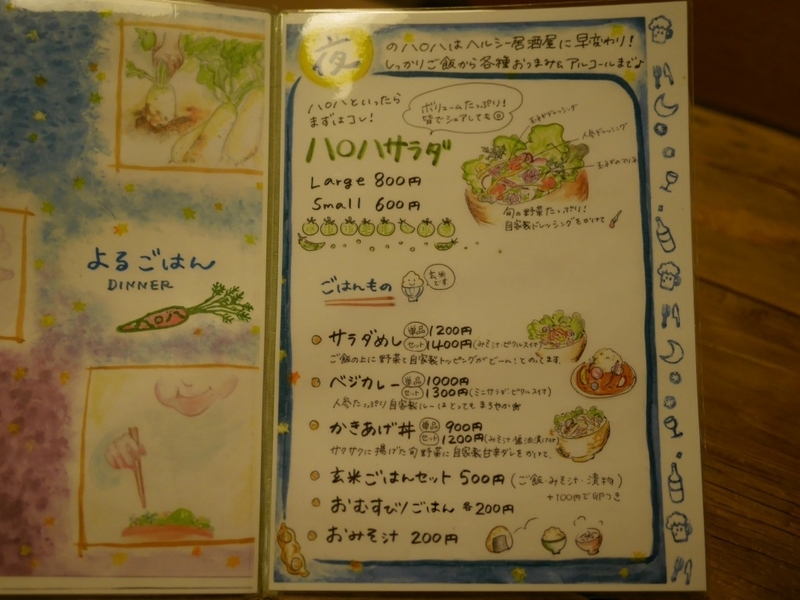 よるごはん
DINNER
夜
のハロハはヘルシー居酒屋に早変わり!
しっかりご飯から各種おつまみ&アルコールまで♪
ハロハといったら
まずはコレ!
ボリュームたっぷり!
皆でシェアしても
ハロハサラダ
Large 800円
Small 600円
人参ドレッシング
旬の野菜たっぷり!
自家製ドレッシングをかけて
ごはんもの
玄米です
サラダめし 単品 1200円
セット 1400円(みそ汁・ピクルス付)
ご飯の上に野菜と自家製トッピングがどーん!とのってます。
ベジカレー 単品 1000円
セット 1300円(ミニサラダ・ピクルス付)
人参たっぷり自家製ルーはとってもまろやか
かきあげ丼 単品 900円
セット 1200円(みそ汁
サクサクに揚げた旬野菜に自家製甘辛ダレをかけて。
玄米ごはんセット 500円(ご飯・みそ汁・漬物)
+100円で卵つき
おむすび/ごはん 各200円
おみそ汁 200円